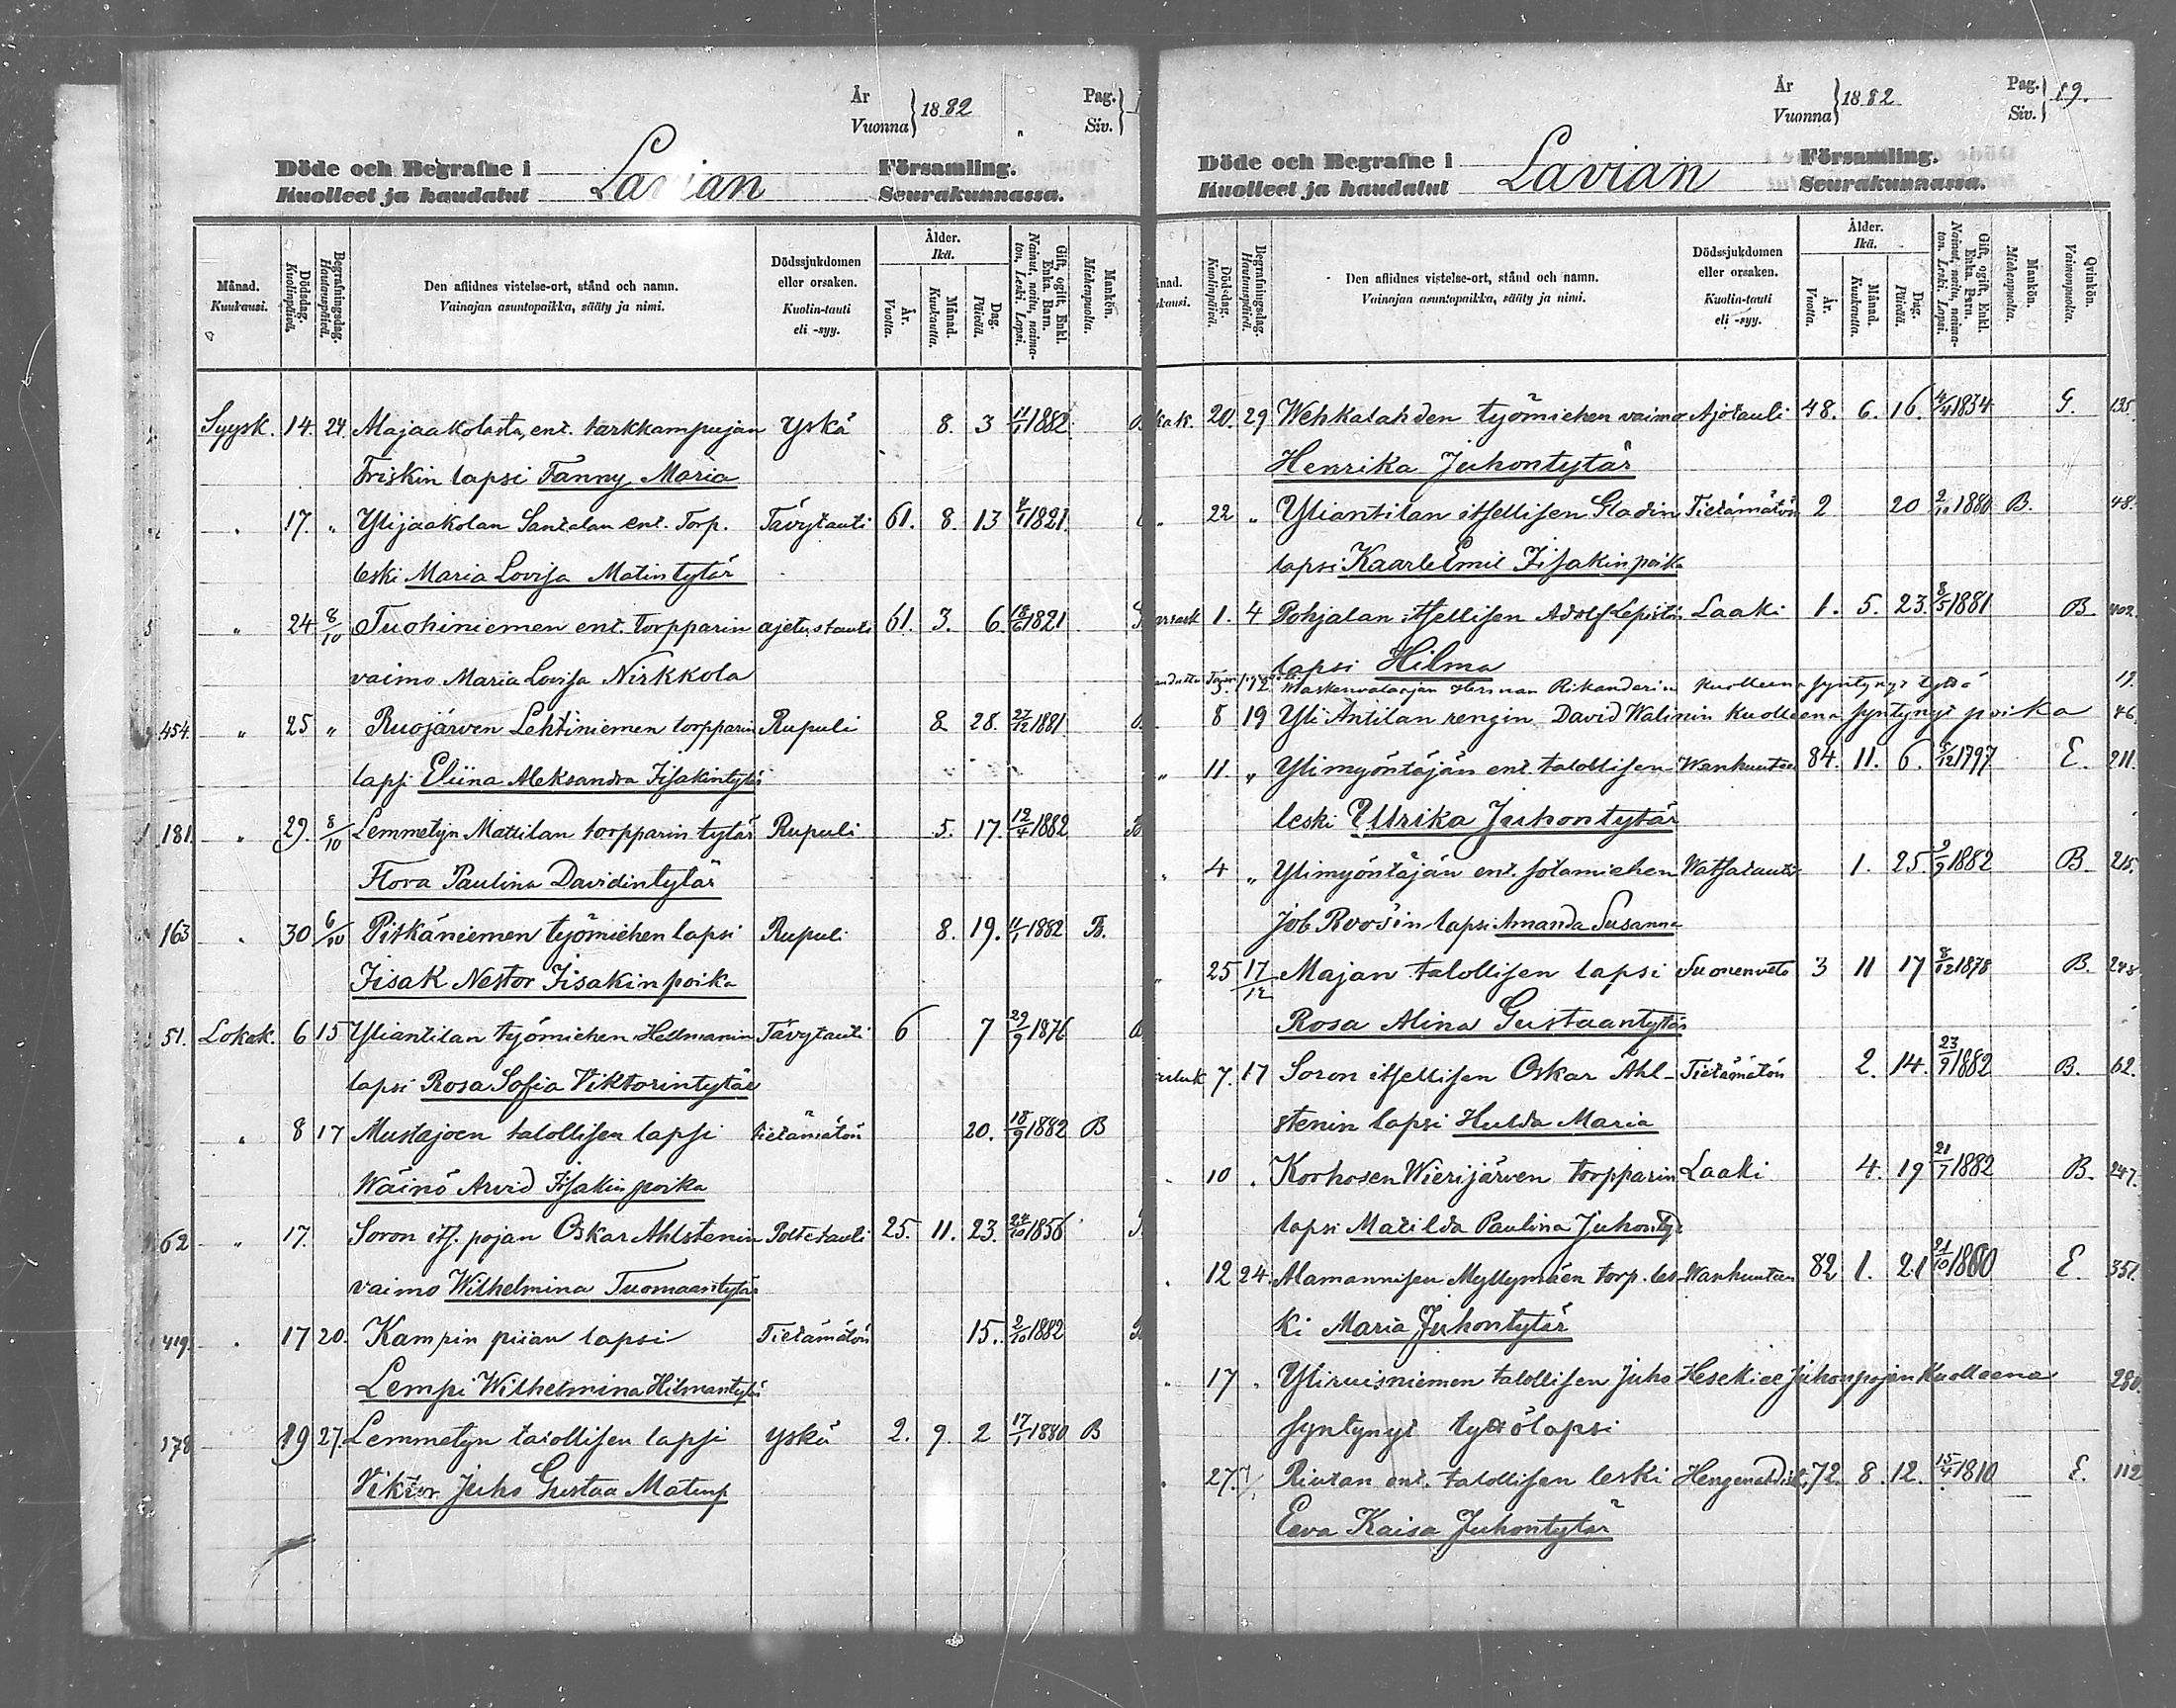 År
Vuonna } 1882
Pag.
Siv. }
Döde och Begrafne i Lavian Församling.
Kuolleet ja haudatut Seurakunnassa.
Månad. Kuukausi.
Dödsdag. Kuolinpäivä.
Begrafningsdag. Hautauspäivä.
Den aflidnes vistelse-ort, stånd och namn.
Vainajan asuntopaikka, sääty ja nimi.
Dödssjukdomen eller orsaken.
Kuolin-tauti eli -syy.
Ålder. Ikä.
År. Vuotta.
Månad. Kuukautta.
Dag. Päivää.
Gift, ogift, Enkl. Enka. Barn. Nainut, naitu, naimaton, Leski. Lapsi.
Mankön. Miehenpuolta.
Syysk. 14. 24. Alajaakolasta, ent. tarkkampujan Yskä 8. 3 11/1 1882
Friskin lapsi Fanny Maria
" 17. " Ylijaakolan Santalan ent. Torp. Tävytauti 61. 8. 13 4/1 1821.
leski Maria Lovisa Matintytär
" 24 8/10 Tuohiniemen ent. torpparin ajetustauti 61. 3. 6. 18/6 1821
vaimo Maria Lovisa Nirkkola
454. " 25 " Ruojärven Lehtiniemen torpparin Rupuli 8 28. 27/12 1881
lapsi Eliina Aleksandra Iisakintytär
181. " 29. 8/10 Lemmetyn Mattilan torpparin tytär Rupuli 5. 17. 12/4 1882
Flora Paulina Davidintytär
163 " 30 6/10 Pitkäniemen työmiehen lapsi Rupuli 8. 19. 11/1 1882 B.
Iisak Nestor Iisakinpoika
51. Lokak. 6 15 Yliantilan työmiehen Hellmanin Tävytauti 6 7 29/9 1876
lapsi Rosa Sofia Viktorintytär
" 8 17 Mustajoen talollisen lapsi tietämätön 20. 18/9 1882 B
Wäinö Arvid Iisakinpoika
62 " 17. Soron its. pojan Oskar Ahlstenin Polttetauti 25. 11. 23. 24/10 1856
vaimo Wilhelmina Tuomaantytär
419. " 17 20. Kampin piian lapsi Tietämätön 15. 2/10 1882
Lempi Wilhelmina Hilmantytär
178 19 27 Lemmetyn talollisen lapsi Yskä 2. 9. 2 17/1 1880 B
Viktor Juho Gustaa Matinp
År
Vuonna } 1882
Pag.
Siv. } 19.
Döde och Begrafne i Lavian Församling.
Kuolleet ja haudatut Seurakunnassa.
Dödsdag. Kuolinpäivä.
Begrafningsdag. Hautauspäivä.
Den aflidnes vistelse-ort, stånd och namn.
Vainajan asuntopaikka, sääty ja nimi.
Dödssjukdomen eller orsaken.
Kuolin-tauti eli -syy.
Ålder. Ikä.
År. Vuotta.
Månad. Kuukautta.
Dag. Päivää.
Gift, ogift, Enkl. Enka. Barn. Nainut, naitu, naimaton. Leski. Lapsi.
Mankön. Miehenpuolta.
Qvinkön. Vaimonpuolta.
kak. 20. 29 Wehkalahden työmiehen vaimo Ajotauti 48. 6. 16. 4/4 1834 G. 135.
Henrika Juhontytär
" 22 " Yliantilan itsellisen Gladin Tietämätön 2 20 2/10 1880 B. 48.
lapsi Kaarle Emil Iisakinpoika
1. 4 Pohjalan itsellisen Adolf Lepistön Laaki 1. 5. 23. 8/5 1881 B. 402.
lapsi Hilma
Herman Rikanderin kuolleena syntynyt tyttö 19.
8 19 Yli Antilan rengin David Walinin kuolleena syntynyt poika 46
" 11. " Ylimyöntäjän ent. talollisen Wanhuuteen 84. 11. 6. 5/12 1797 E. 211.
leski Ullrika Juhontytär
" 4 " Ylimyöntäjän ent. sotamiehen Watsatauti 1. 25. 9/9 1882 B. 215.
Job Roosin lapsi Amanda Susanna
" 25 17/12 Majan talollisen lapsi Suonenveto 3 11 17 8/12 1878 B. 248
Rosa Alina Gustaantytär
7. 17 Soron itsellisen Oskar Åhl- Tietämätön 2. 14. 23/9 1882 B. 62.
stenin lapsi Hulda Maria
" 10 " Korhosen Wierijärven torpparin Laaki 4. 19 21/7 1882 B. 247.
lapsi Matilda Paulina Juhonty
" 12 24. Alamannisen Myllymäen torp. les- Wanhuuteen 82 1. 21 21/10 1800 E. 351.
ki Maria Juhontytär
" 17 " Yliruisniemen talollisen Juho Hesekiel Juhonpojan kuolleena 280.
syntynyt tyttölapsi
27. Riutan ent. talollisen leski Hengenahdist. 72. 8. 12. 15/4 1810 E. 112
Eeva Kaisa Juhontytär